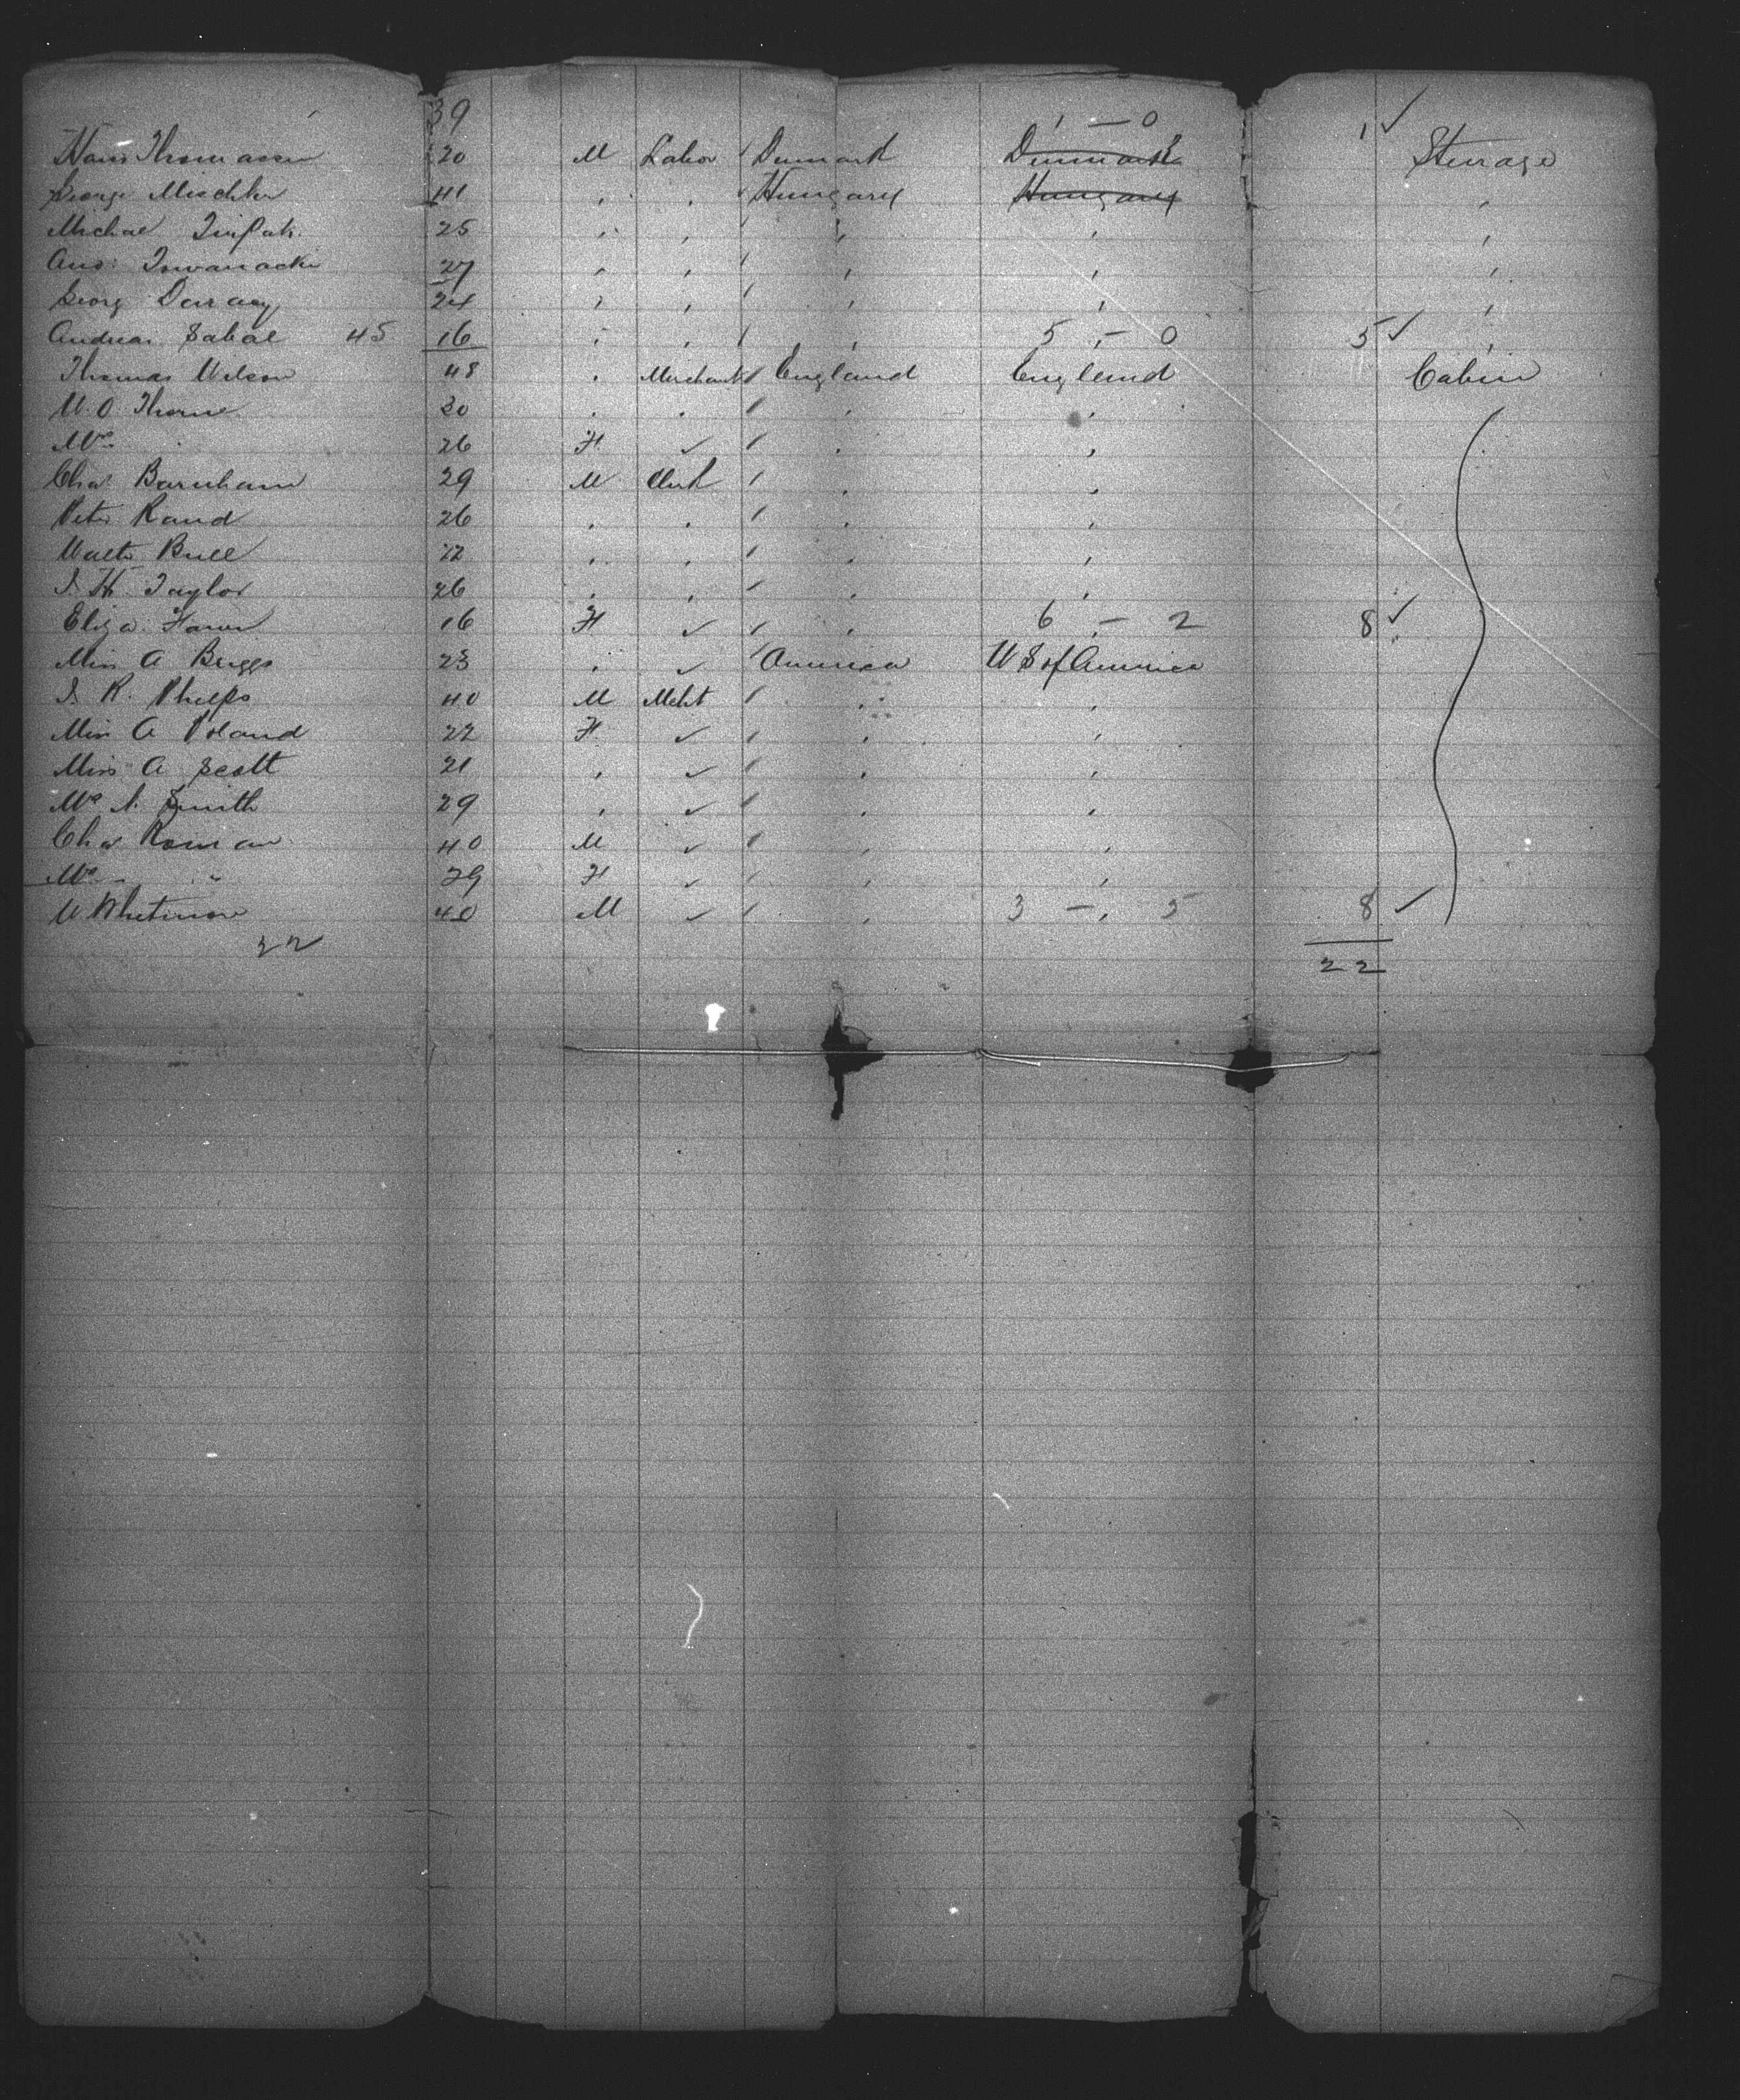 39 1 — 0 1 ✓
Hans Thomassen 20 M Labor / Denmark Denmark Steerage
George Mischko 41 " " Hungary Hungary "
Michael 25 " " " " "
And. 27 " " / " " "
Georg 24 " " / " " "
Andreas Sabal 45 16 " " / " 5 — 0 5 ✓ "
Thomas Wilson 48 " Merchant / England England Cabin
W. O. Thorne 30 " " / " "
Mrs " 26 F ✓ / " "
Chas Barnham 29 M Clerk / " "
Peter Rand 26 " " / " "
Walter Bull 22 " " / " "
J. H. Taylor 26 " " / " "
Eliza 16 F ✓ / " 6 — 2 8 ✓
Miss A Briggs 23 " ✓ / America U S of America
J. R. Phelps 40 M Mcht / " "
Miss A Poland 22 F ✓ / " "
Miss A Scott 21 " ✓ / " "
Mrs N. Smith 29 " ✓ / " "
Chas 40 M ✓ / " "
Mrs " 29 F ✓ / " "
W Whitmore 40 M ✓ / " 3 — 5 8 ✓
22 22